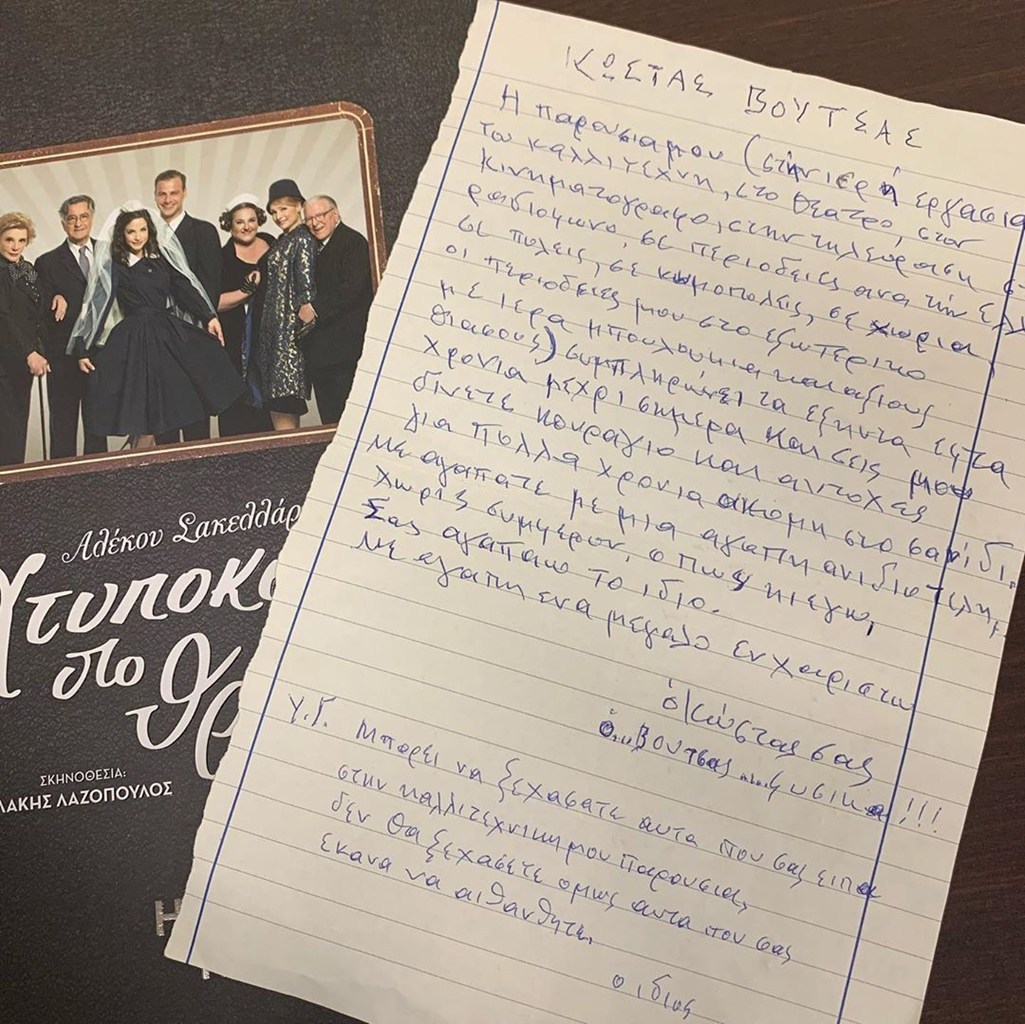 Αλέκου Σακελλάρ
Χτυποκά
στο θρ
ΣΚΗΝΟΘΕΣΙΑ:
ΛΑΚΗΣ ΛΑΖΟΠΟΥΛΟΣ
ΚΩΣΤΑΣ ΒΟΥΤΣΑΣ
Η παρουσια μου (στην ιερή εργασια
του καλλιτέχνη, στο θεατρο, στον
κινηματογραφο, στην τηλεοραση
ραδιοφωνο, σε περιοδειες ανα την Ελ
σε πολεις, σε κωμοπολεις, σε χωρια
οι περιοδειες μου στο εξωτερικο
με ιερα μπουλουκια και αξιους
θιασους) συμπληρώνει τα εξηντα εφτα
χρονια μεχρι σημερα και σεις μου
δινετε κουραγιο και αντοχες
για πολλα χρονια ακομη στο σανίδι.
Με αγαπατε με μια αγαπη ανιδιοτελη,
χωρις συμφερον, οπως κι εγω,
Σας αγαπαω το ιδιο.
Με αγαπη ενα μεγαλο ευχαριστω
ὁ Κώστας σας
ο.. Βουτσας .... φυσικα!!!
Υ.Γ. Μπορει να ξεχασατε αυτα που σας ειπα
στην καλλιτεχνικη μου παρουσια,
δεν θα ξεχασετε ομως αυτα που σας
εκανα να αισθανθητε.
ο ιδιος